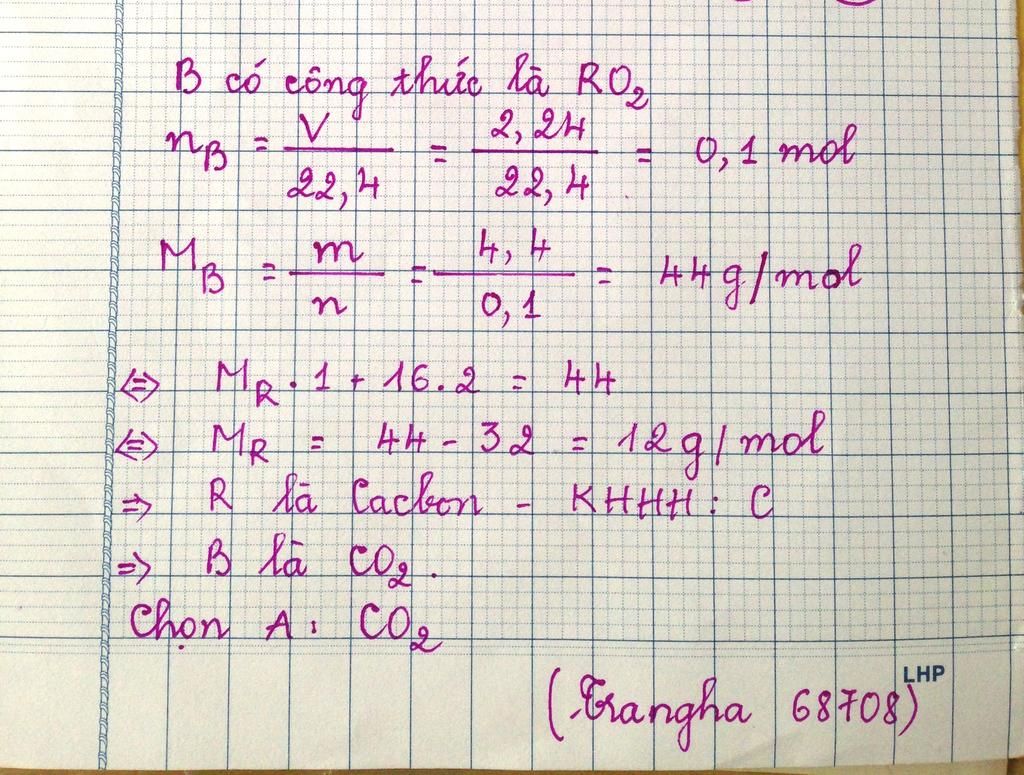 B có công thức là RO₂
n_B = V/22,4 = 2,24/22,4 = 0,1 mol
M_B = m/n = 4,4/0,1 = 44g/mol
⇔ M_R . 1 + 16.2 = 44
⇔ M_R = 44 - 32 = 12g/mol
⇒ R là Cacbon - KHHH: C
⇒ B là CO₂.
Chọn A: CO₂
LHP
(Trangha 68708)